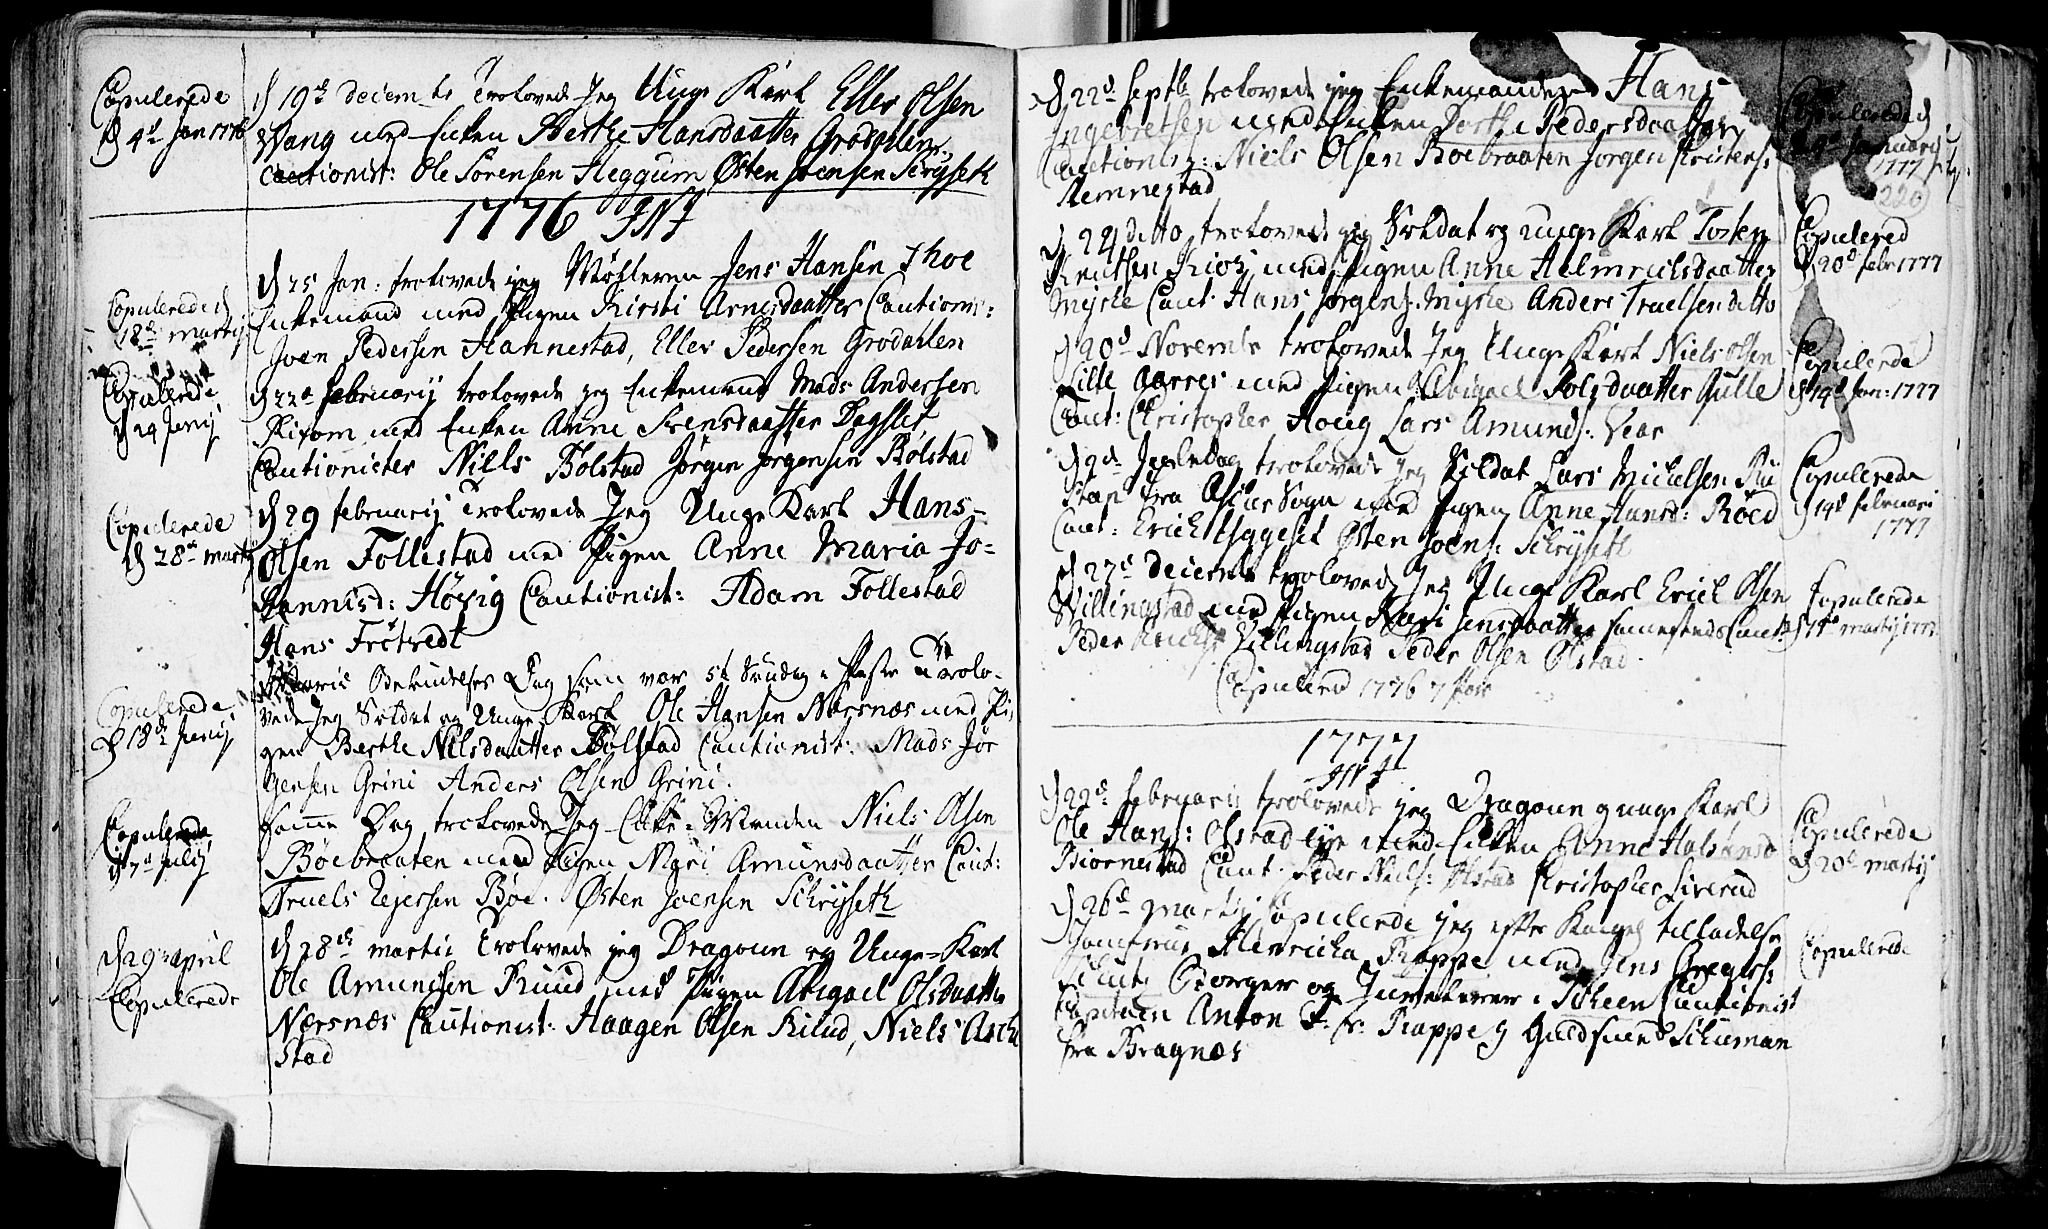 Copulerede
d 4d Jan 1776
d 19de decemb trolovede Jeg Unge Karl Eller Olsen
Wang med Enken Berthe Hansdaatter Grodahlen
Cautionist: Ole Sørensen Heggum Østen Joensen Schrijseth
1776 INI
Copulerede d
18de martij
d 25 Jan: trolovede jeg Møhleren Jens Hansen Thoe
Enkemand med Pigen Kirsti Arnesdaatter Cautioni:
Joen Pedersen Hannestad, Eller Pedersen Grodahlen
Copulerede
d 29 Junij
d 22d februarij trolovede jeg Enkemand Mads Andersen
med Enken Anne Svensdaatter Dagslet
Cautionister Niels Bølstad Jørgen Jørgensen Bølstad
Copulerede
d 28de martij
d 29 februarij trolovede Jeg Unge Karl Hans
Olsen Follestad med Pigen Anne Maria Jo=
hannisd: Høvig Cautionist: Adam Follestad
Hans Frøtvedt
Copulerede
d 18de Junij
Mariæ Bebudelses Dag som var 5te Søndag i Faste trolo-
vede Jeg Soldat og Unge Karl Ole Hansen Nærsnæs med Pi
gen Berthe Nilsdaatter Bølstad Cautionist: Mads Jør
gensen Grini Anders Olsen Grini.
Copulerede
d 7d Julij
samme Dag trolovede Jeg Encke-Manden Niels Olsen
Bøebraaten med Pigen Mari Amunsdaatter Caut:
Truels Rejersen Bøe. Østen Joensen Schrijseth
d 29 april
Copulerede
d 28de martii trolovede jeg Dragoun og Unge-Karl
Ole Amundsen Ruud med Pigen Abigael Olsdaatter
Nærsnæs Cautionist: Haagen Olsen Rilud, Niels Asch
stad
d 22d Septb trolovede jeg Enkemanden Hans
Ingebretsen med Enken Dorthe Pedersdaatter
Cautionist: Niels Olsen Boebraaten Jørgen Kristens:
Hemnestad
Copulerede d
Januarij
1777
220
d 24 ditto trolovede jeg Soldat og unge Karl Tosten
Knutsen Kios med Pigen Anne Helmeichsdaatter
Myhre Caut. Hans Jørgens: Myhre Anders Truelsen ditto
Copulered
d 20d febr 1777
d 20d Novemb trolovede Jeg Unge Karl Niels Olsen
Lille Aarres med Pigen Abigael Polsdaatter Gulle
Caut: Christopher Houg Lars Amunds: Vear
Copulerede
d 19d Jan: 1777
d 2d Juledag trolovede Jeg Soldat Lars Mickelsen Ru
stan fra Asker Sogn med Pigen Anne Hansd: Røed
Caut: Erich Hyggeset Østen Joens: Schrijseth
Copulerede
d 19d februari
1777
d 27d Decemb trolovede Jeg Unge Karl Erich Olsen
Villingstad med Pigen Kari Jensdaatter sammesteds Caut:
Peder Villingstad Peder Olsen Olstad.
Copulered 1776 7 Par
Copulerede
d 17d martij 1777
1777
INI
d 22d februarii trolovede jeg Dragoun og unge Karl
Ole Hans: Olstad eje med Enken Anne Halstensd
Biørnestad Caut. Peder Niels: Olstad Kristopher Siverud
Copulerede
d 20d martij
d 26d martij Copulerede jeg efter Kongel tilladelse
Jomfrue Henricha Rappe med Jens Gregers:
Borger og Juvelerer i Scheen Cautionist
Capitain Anton Rappe og Guldsmed Schuman
fra Bragnæs
Copulerede